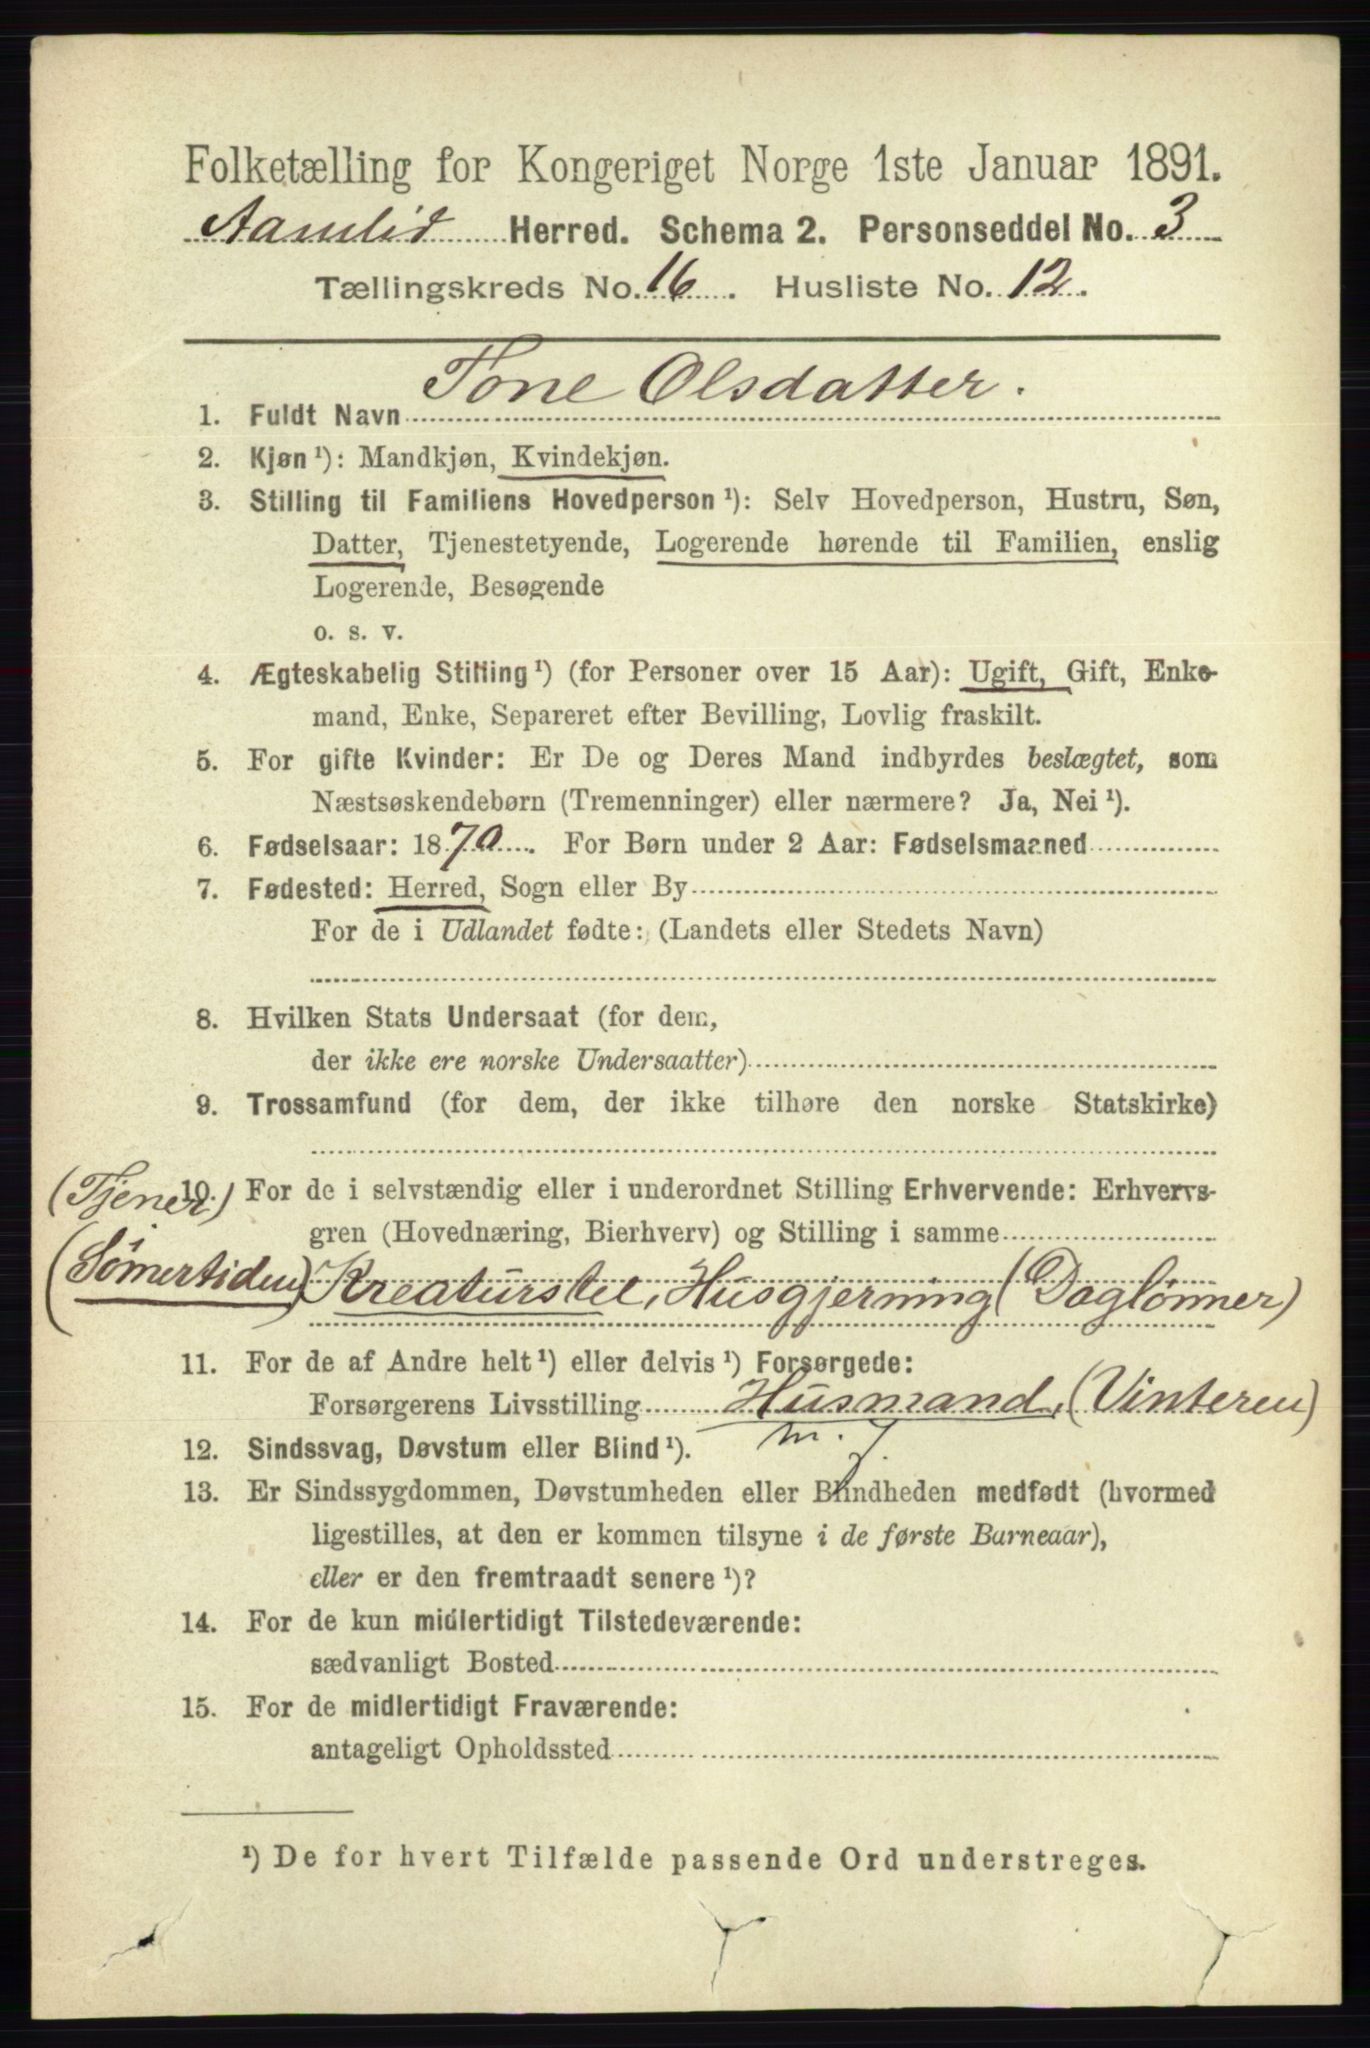 Folketælling for Kongeriget Norge 1ste Januar 1891.
Aamlid Herred. Schema 2. Personseddel No. 3
Tællingskreds No. 16. Husliste No. 12.
Tone Olsdatter.
1. Fuldt Navn
2. Kjøn¹): Mandkjøn, Kvindekjøn.
3. Stilling til Familiens Hovedperson¹): Selv Hovedperson, Hustru, Søn,
Datter, Tjenestetyende, Logerende hørende til Familien, enslig
Logerende, Besøgende
o. s. v.
4. Ægteskabelig Stilling¹) (for Personer over 15 Aar): Ugift, Gift, Enke-
mand, Enke, Separeret efter Bevilling, Lovlig fraskilt.
5. For gifte Kvinder: Er De og Deres Mand indbyrdes beslægtet, som
Næstsøskendebørn (Tremenninger) eller nærmere? Ja, Nei¹).
6. Fødselsaar: 1870. For Børn under 2 Aar: Fødselsmaaned
7. Fødested: Herred, Sogn eller By
For de i Udlandet fødte: (Landets eller Stedets Navn)
8. Hvilken Stats Undersaat (for dem,
der ikke ere norske Undersaatter)
9. Trossamfund (for dem, der ikke tilhøre den norske Statskirke)
(Tjener) 10. For de i selvstændig eller i underordnet Stilling Erhvervende: Erhvervs-
gren (Hovednæring, Bierhverv) og Stilling i samme
(Sømertiden) Kreaturstel, Husgjerning (Daglønner)
11. For de af Andre helt¹) eller delvis¹) Forsørgede:
Forsørgerens Livsstilling Husmand, (Vinteren)
m. j.
12. Sindssvag, Døvstum eller Blind¹).
13. Er Sindssygdommen, Døvstumheden eller Blindheden medfødt (hvormed
ligestilles, at den er kommen tilsyne i de første Barneaar),
eller er den fremtraadt senere¹)?
14. For de kun midlertidigt Tilstedeværende:
sædvanligt Bosted
15. For de midlertidigt Fraværende:
antageligt Opholdssted
¹) De for hvert Tilfælde passende Ord understreges.